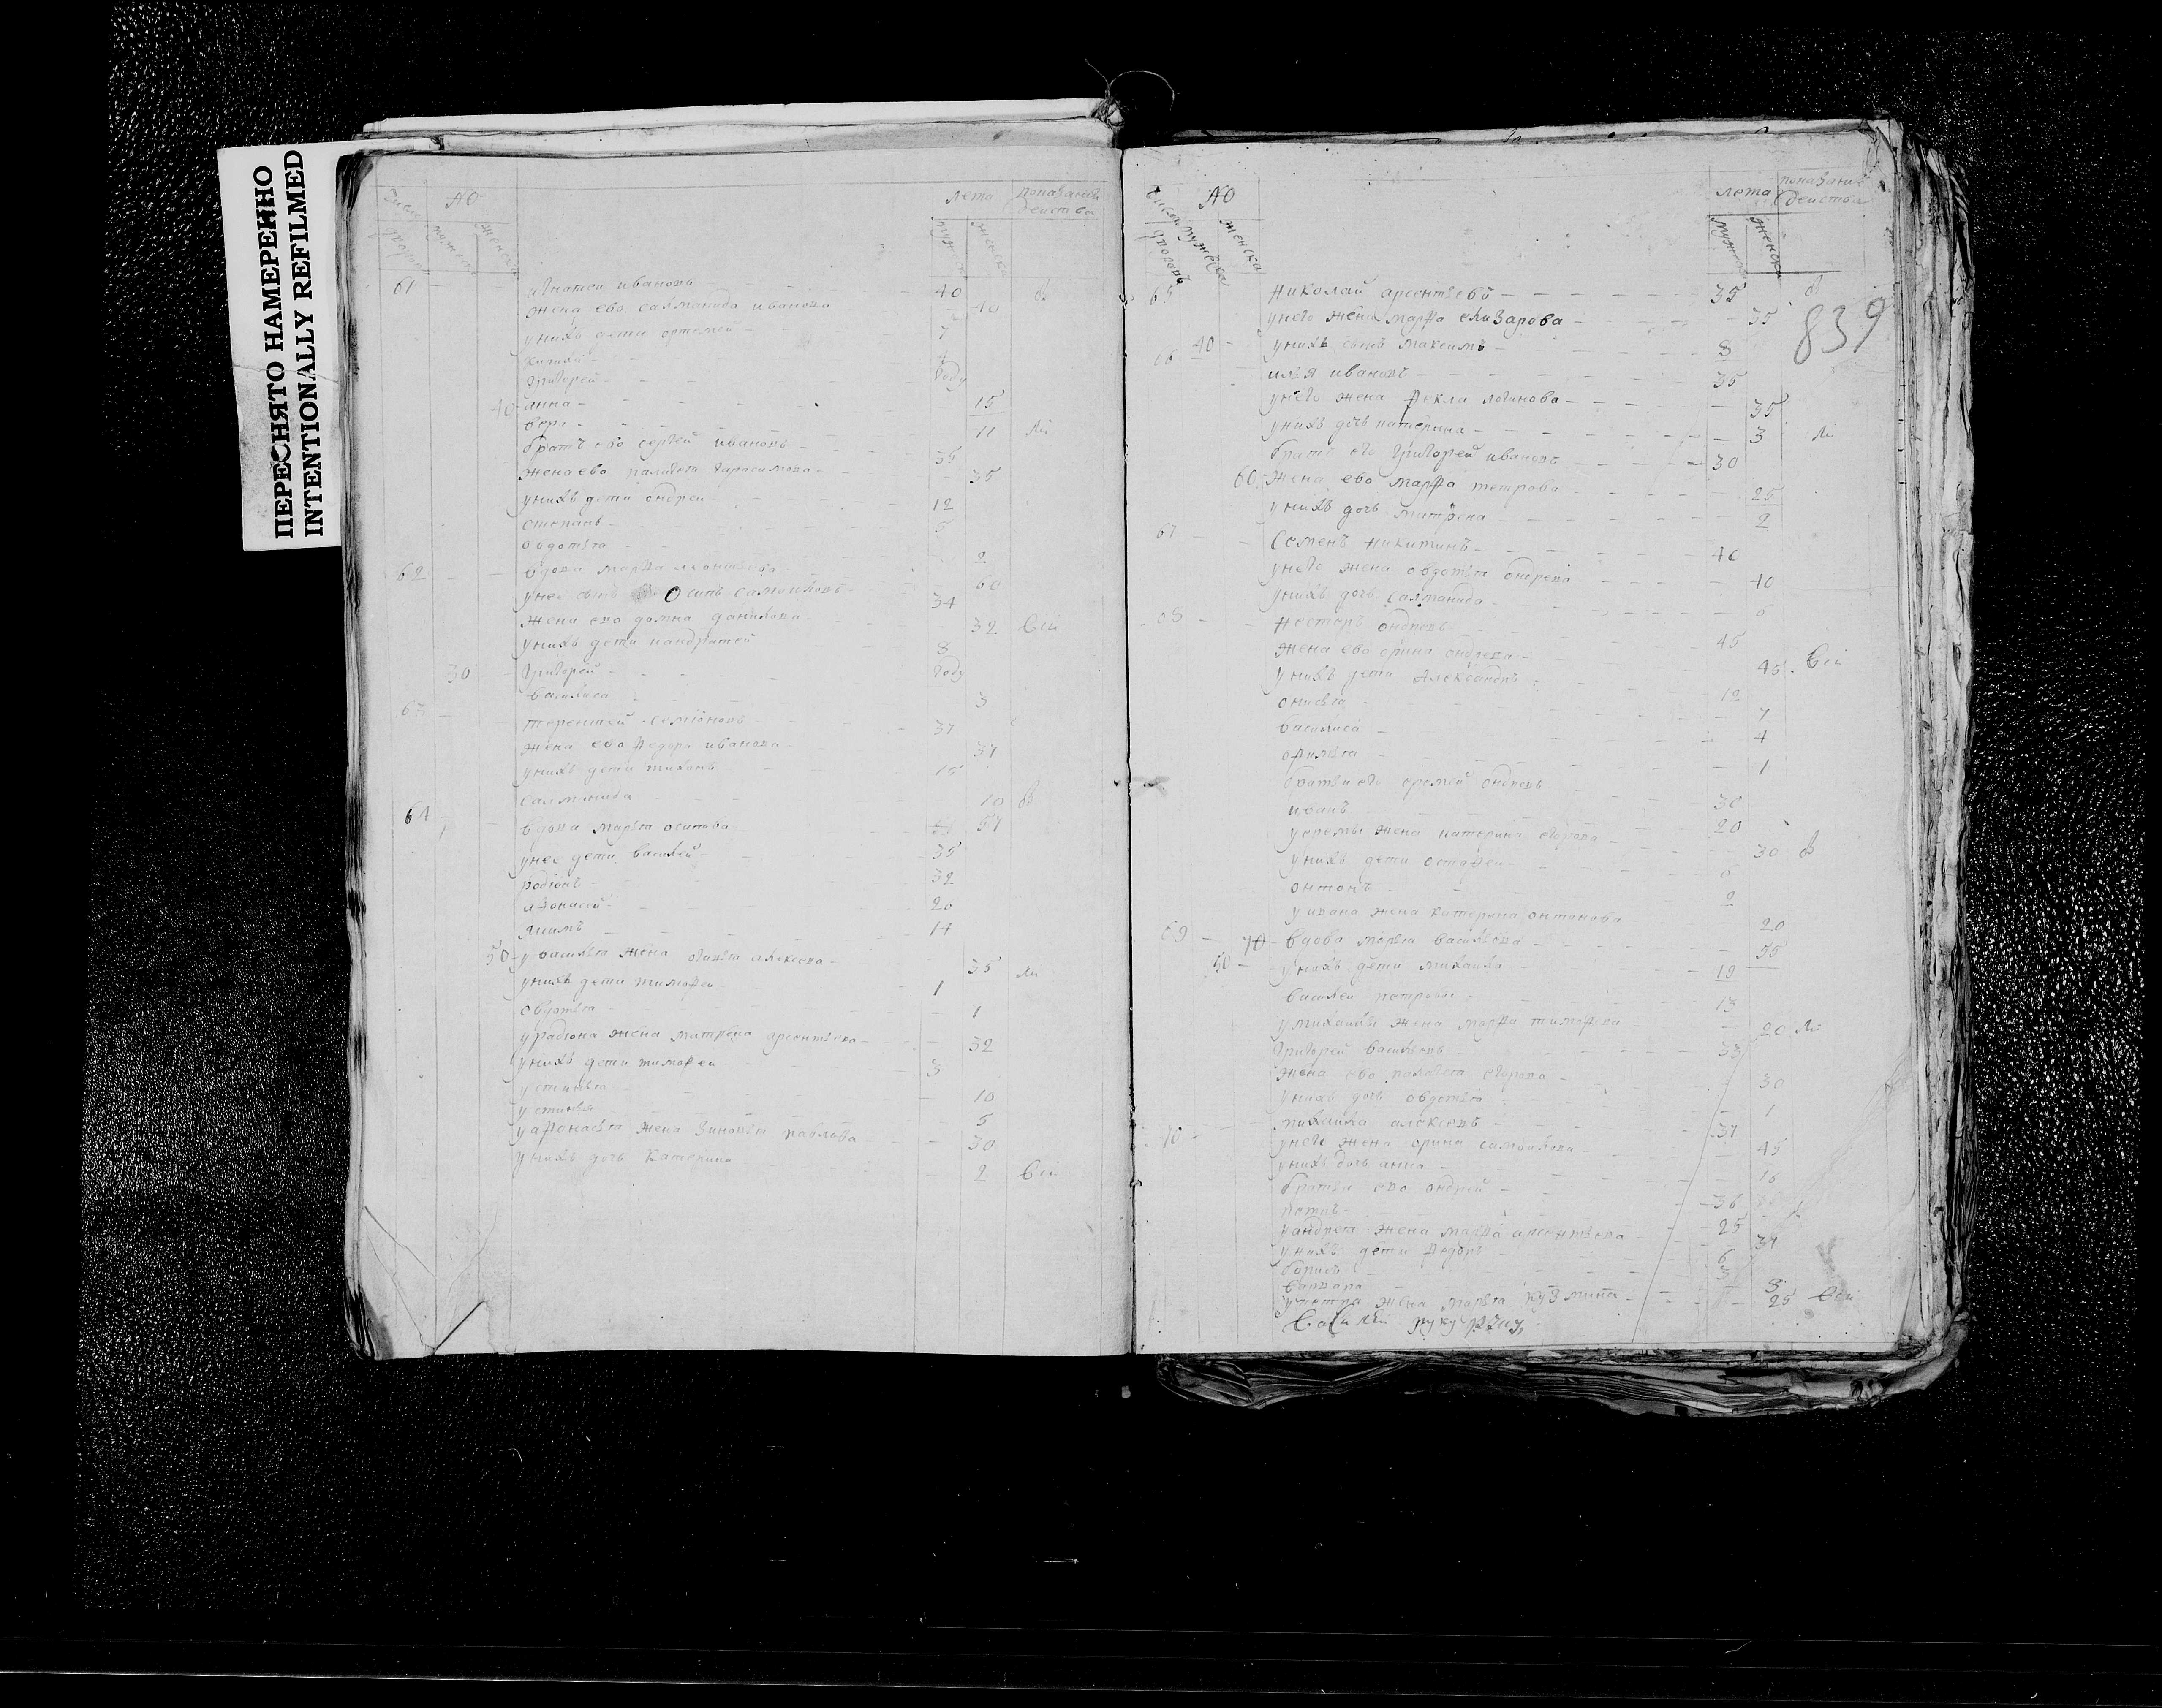 ПЕРЕСНЯТО НАМЕРЕННО
INTENTIONALLY REFILMED
число дворовъ
NO
мужеска
женска
лета
мужеска
женска
показание действа
61 игнатей ивановъ 40
жена ево саламанида иванова 40
унихъ дети ортемей 7
григорей году
40 анна 15
вера 11
братъ ево сергей ивановъ 35
жена ево палагея гарасимова 35
унихъ дети ондрей 12
степанъ 5
овдотья 2
62 вдова марфа леонтьева 60
унее сынъ Осипъ самоиловъ 34
жена ево домна данилова 32
унихъ дети кондратей 8
30 григорей году
василиса 3
63 терентей семионовъ 37
жена ево федора иванова 37
унихъ дети тихонъ 15
саламанида 10
64 вдова марья осипова 57
унее дети василей 35
родионъ 32
афонисей 20
якимъ 14
50 у василья жена огафья алексева 35
унихъ дети тимофей 1
овдотья 1
у радиона жена матрена арсентьева 32
унихъ дети тимофей 3
устинья 10
устинья 5
у афонасья жена зиновья павлова 30
унихъ дочь катерина 2
число дворовъ
NO
мужеска
женска
лета
мужеска
женска
показание действа
839
65 николай арсентьевъ 35
унего жена марфа елизарова 35
40 унихъ сынъ максимъ 8
66 илья ивановъ 35
унего жена фекла логинова 35
унихъ дочь катерина 3
братъ его григорей ивановъ 30
60 жена ево марфа петрова 25
унихъ дочь матрена 2
67 семенъ никитинъ 40
унего жена овдотья ондрева 40
унихъ дочь саламанида 6
68 несторъ ондревъ 45
жена ево орина ондрева 45
унихъ дети александръ 12
онисья 7
василиса 4
офимья 1
братьи его еремей ондревъ 30
иванъ 20
у еремы жена катерина егорова 30
унихъ дети остафей 6
онтонъ 2
у ивана жена катерина онтонова 20
69 70 вдова марья васильева 55
50 унихъ дети михаила 19
василей петровы 13
у михаилы жена марфа тимофева 20
григорей васильевъ 33
жена ево палагея егорова 30
унихъ дочь овдотья 1
70 михаила алексевъ 37
унего жена орина самоилова 45
унихъ дочь анна 10
братьи ево ондрей 36
петръ 25
у андрея жена марфа арсентьева 37
унихъ дети федоръ 6
борисъ 3
варвара 8
у петра жена марья кузмина 25
Василей руку